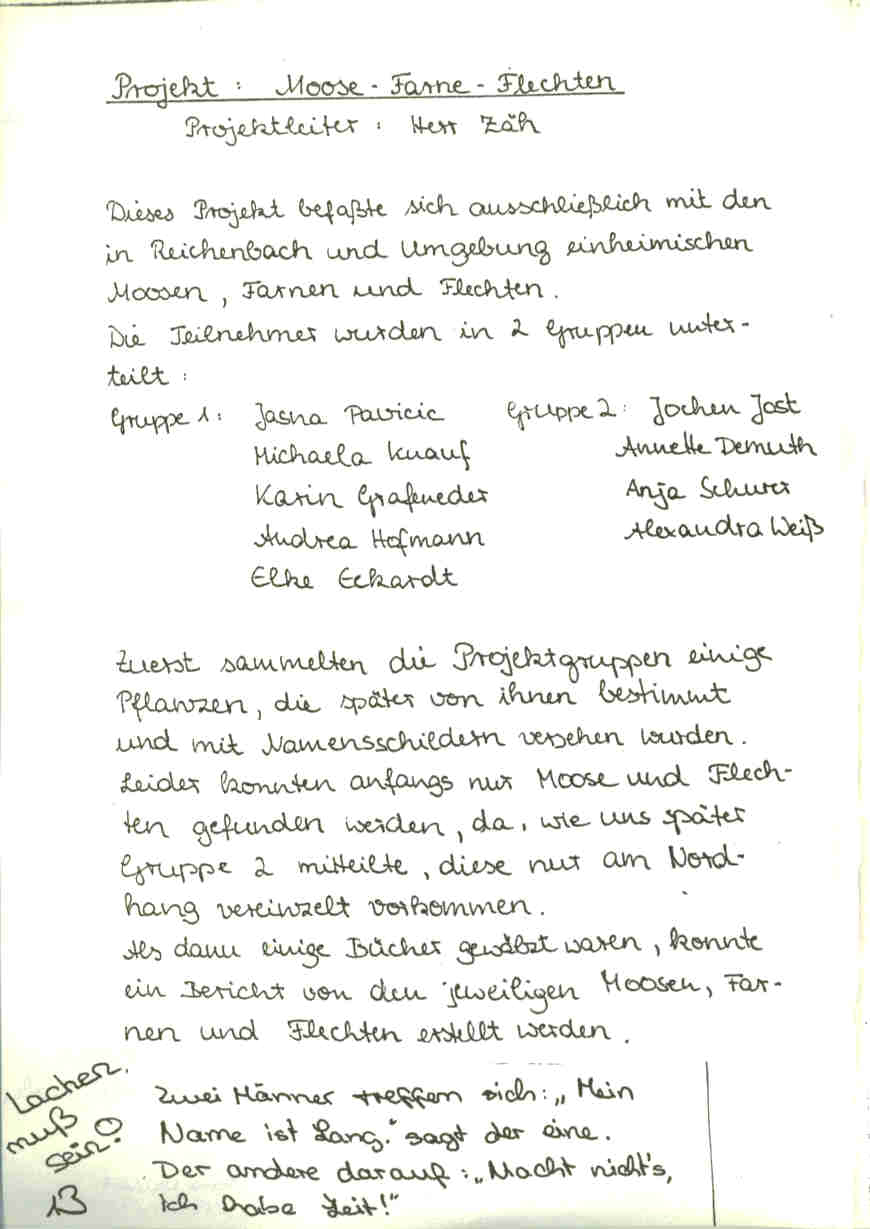 Projekt : Moose - Farne - Flechten
Projektleiter : Herr Zäh
Dieses Projekt befaßte sich ausschließlich mit den
in Reichenbach und Umgebung einheimischen
Moosen , Farnen und Flechten .
Die Teilnehmer wurden in 2 Gruppen unter-
teilt :
Gruppe 1 : Jasna Pavicic Gruppe 2 : Jochen Jost
Michaela Knauf Annette Demuth
Karin Grafeneder Anja Schurr
Andrea Hofmann Alexandra Weiß
Elke Eckardt
Zuerst sammelten die Projektgruppen einige
Pflanzen, die später von ihnen bestimmt
und mit Namensschildern versehen wurden .
Leider konnten anfangs nur Moose und Flech-
ten gefunden werden , da , wie uns später
Gruppe 2 mitteilte , diese nur am Nord-
hang vereinzelt vorkommen .
Als dann einige Bücher gewälzt waren , konnte
ein Bericht von den jeweiligen Moosen, Far-
nen und Flechten erstellt werden .
Lachen
muß
sein!
Zwei Männer treffen sich : „ Mein
Name ist Lang." sagt der eine.
Der andere darauf : „Macht nicht's,
Ich habe Zeit!"
13